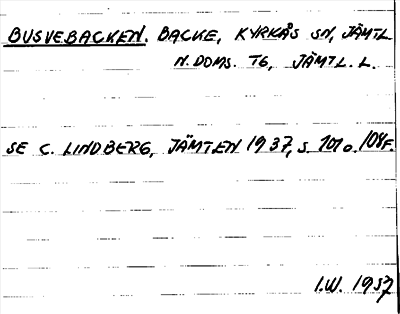 BUSVEBACKEN. BACKE, KYRKÅS SN, JÄMTL.
N. DOMS. TG, JÄMTL. L.
SE C. LINDBERG, JÄMTEN 1937, S. 101 o. 108 F.
I.W. 1937